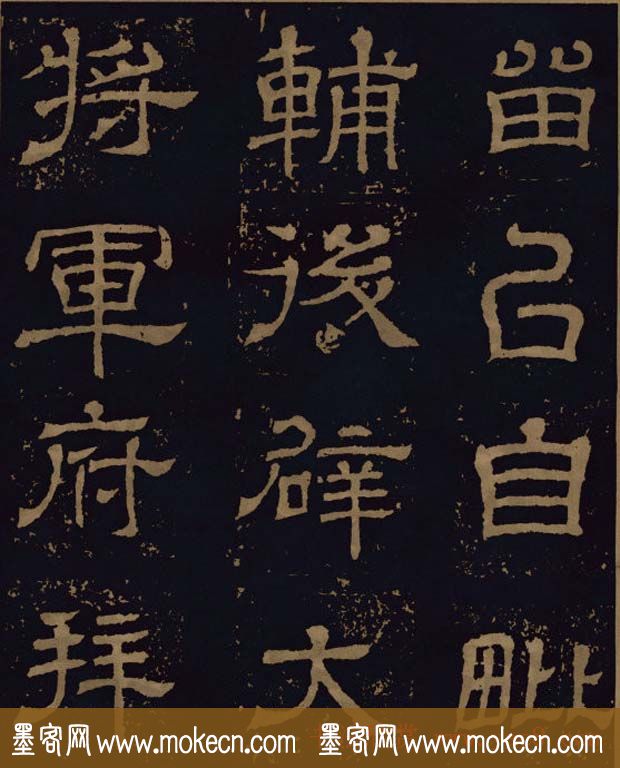 留㠯自毗
輔後辟大
將軍府拜
墨客网 www.mokecn.com 墨客网 www.mokecn.com